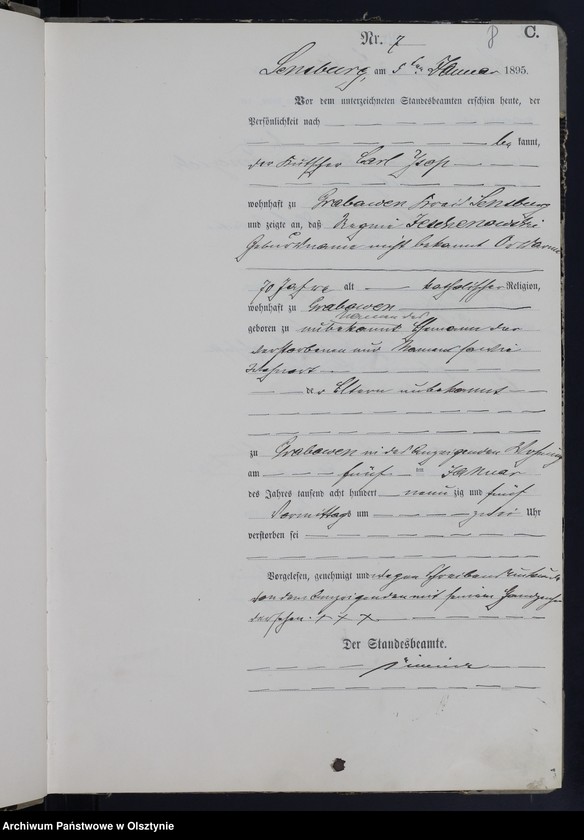 8 C.
Nr. 7
Sensburg, am 5ten Januar 1895.
Vor dem unterzeichneten Standesbeamten erschien heute, der
Persönlichkeit nach
be kannt,
der Kutscher Carl
wohnhaft zu Grabowen Kreis Sensburg
und zeigte an, daß
Geburtsname nicht bekannt
70 Jahre alt katholischer Religion,
wohnhaft zu Grabowen
geboren zu unbekannt Ehemann der
verstorbenen
der Eltern unbekannt
zu Grabowen in des Anzeigenden Wohnung
am fünf ten Januar
des Jahres tausend acht hundert neun zig und fünf
Vormittags um Uhr
verstorben sei
Vorgelesen, genehmigt und wegen Schreibensunkunde
von dem Anzeigenden mit seinem Handzeichen
versehen. + + +
Der Standesbeamte.
Archiwum Państwowe w Olsztynie